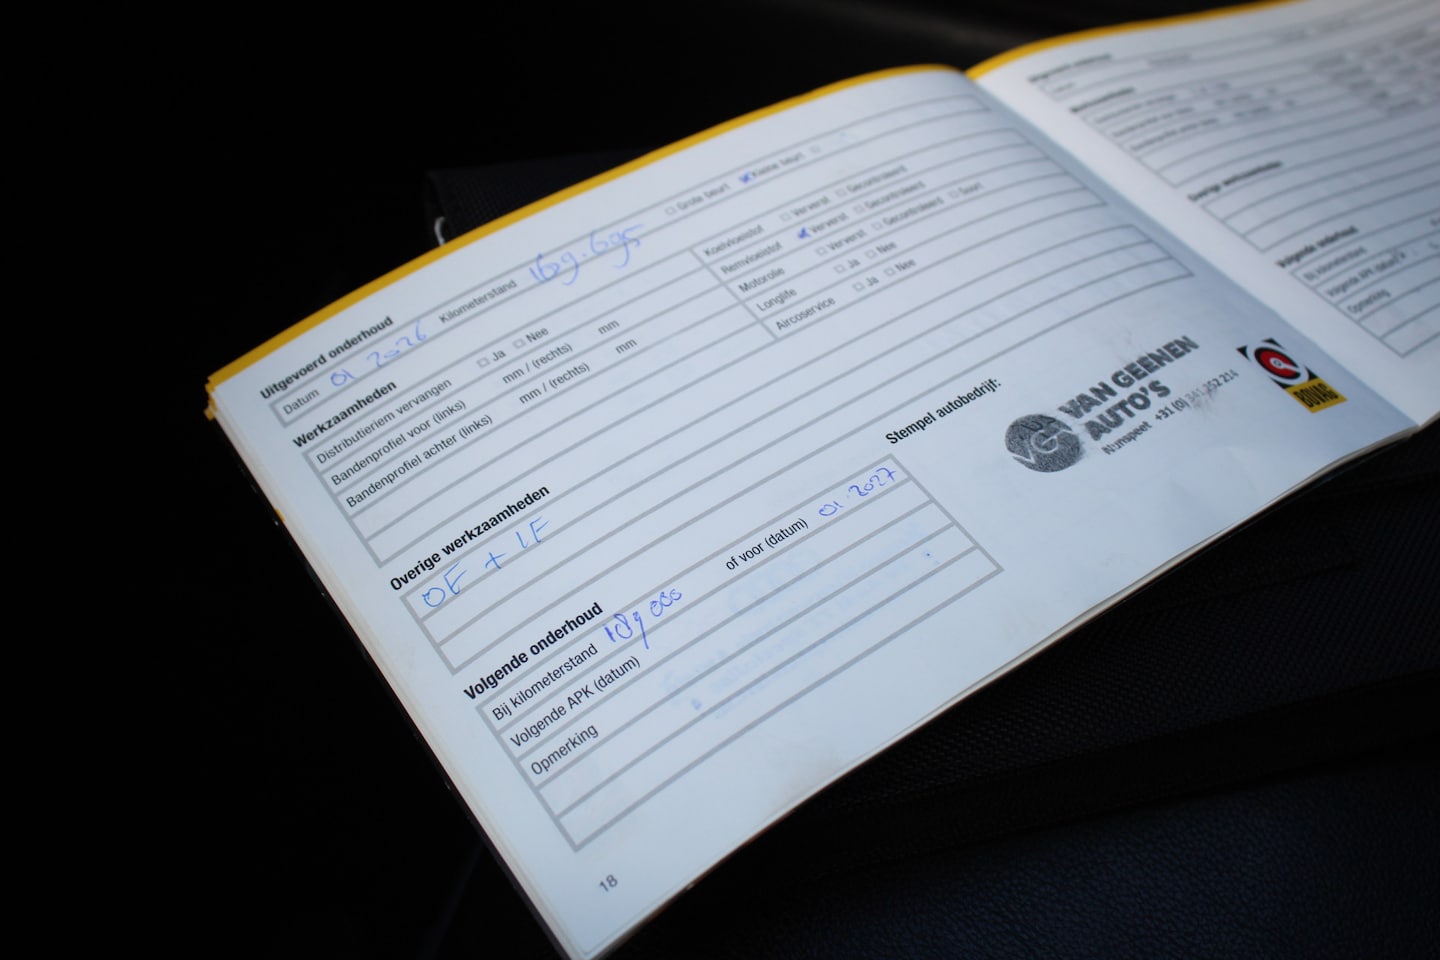 Uitgevoerd onderhoud
Datum 01 2026 Kilometerstand 169.695 Grote beurt Kleine beurt
Werkzaamheden
Distributieriem vervangen Ja Nee
Bandenprofiel voor (links) mm / (rechts) mm
Bandenprofiel achter (links) mm / (rechts) mm
Koelvloeistof Ververst Gecontroleerd
Remvloeistof Ververst Gecontroleerd
Motorolie Ververst Gecontroleerd Soort
Longlife Ja Nee
Aircoservice Ja Nee
Overige werkzaamheden
OF + LF
Volgende onderhoud
Bij kilometerstand 189 000 of voor (datum) 01.2027
Volgende APK (datum)
Opmerking
Stempel autobedrijf:
VG
VAN GEENEN
AUTO'S
Nunspeet +31 (0) 341 252 214
BOVAG
18
Overige werkzaamheden
Volgende onderhoud
Bij kilometerstand
Volgende APK (datum)
Opmerking